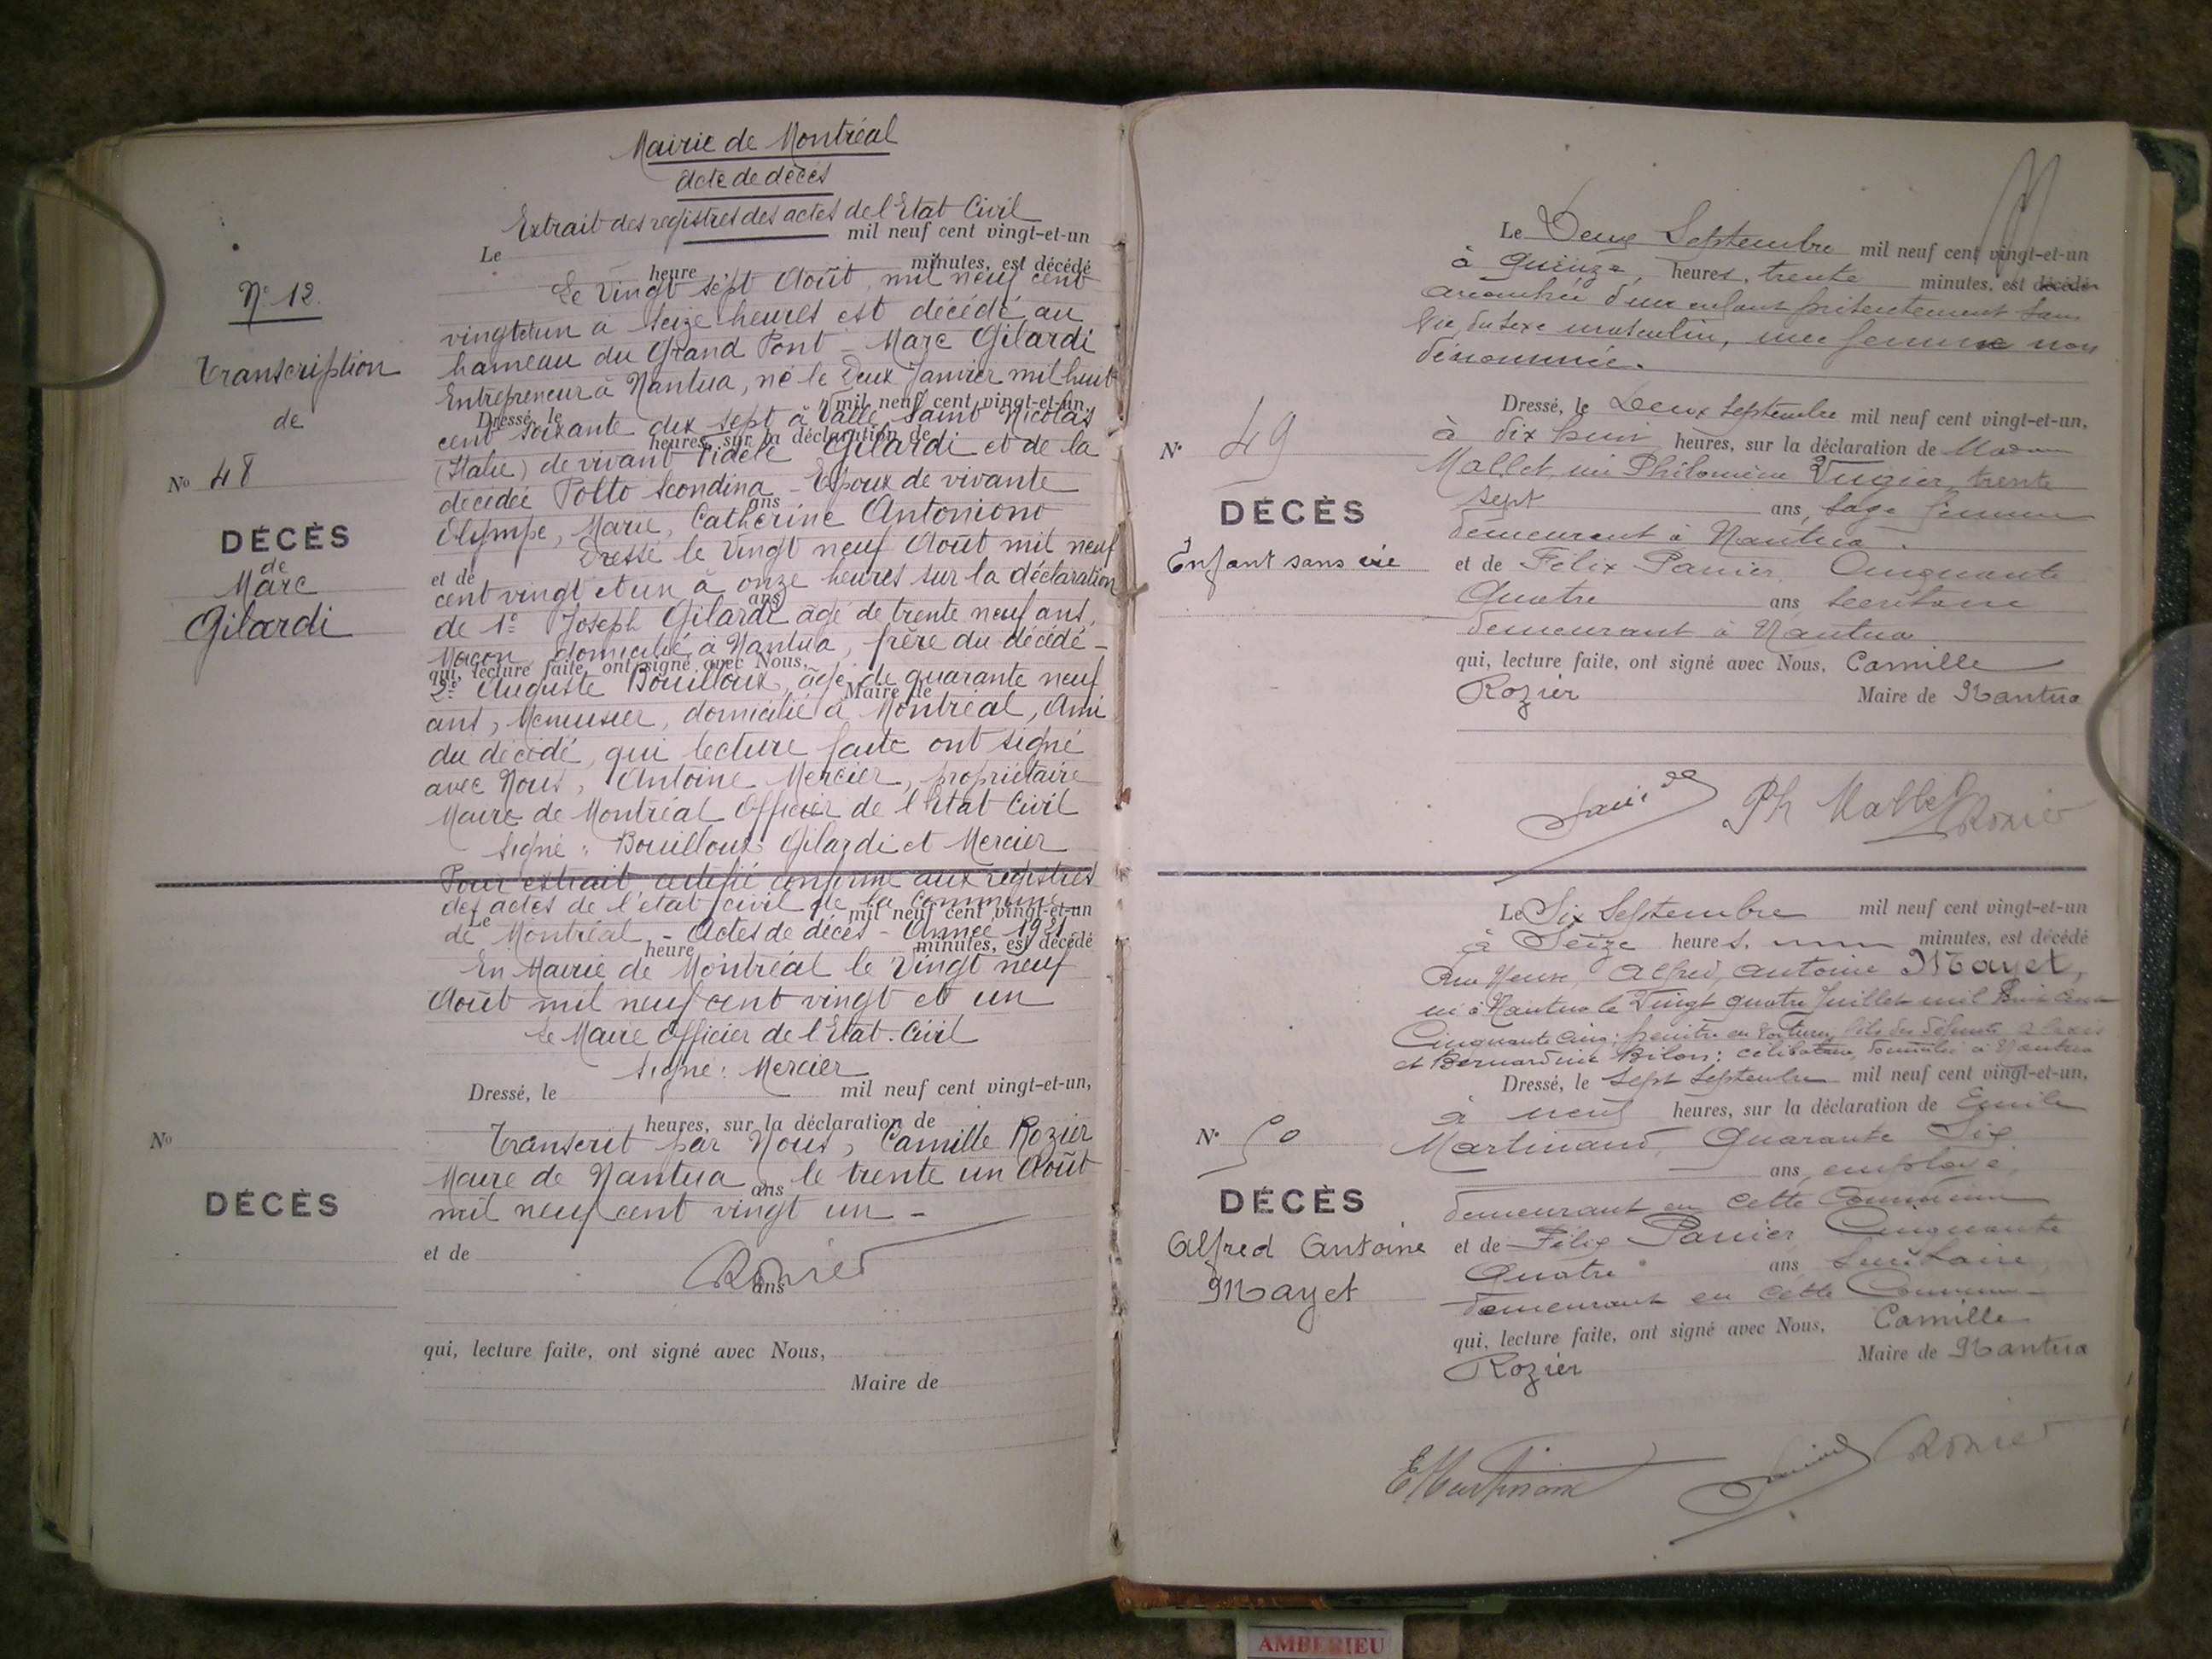 Mairie de Montréal
Acte de décès
Extrait des registres des actes de l'Etat Civil
Le mil neuf cent vingt-et-un
heure minutes, est décédé
Le vingt sept Août mil neuf cent
vingt et un à seize heures est décédé au
hameau du Grand Pont - Marc Gilardi
Entrepreneur à Nantua, né le deux Janvier mil huit
Dressé, le mil neuf cent vingt-et-un,
cent soixante dix sept à Valle Saint Nicolas
heures, sur la déclaration de
(Italie) de vivant Fidèle Gilardi et de la
décédée Polto Scondina - Epoux de vivante
ans
Olympe, Marie, Catherine Antoniono
Dressé le vingt neuf Août mil neuf
et de
cent vingt et un à onze heures sur la déclaration
ans
de 1° Joseph Gilardi âgé de trente neuf ans,
Maçon, domicilié à Nantua, frère du décédé -
qui, lecture faite, ont signé avec Nous,
2° Auguste Bouilloux, âgé de quarante neuf
Maire de
ans, Menuisier, domicilié à Montréal, Ami
du décédé, qui lecture faite ont signé
avec Nous, Antoine Mercier, propriétaire
Maire de Montréal Officier de l'Etat Civil
Signé : Bouilloux Gilardi et Mercier
Pour extrait certifié conforme aux registres
des actes de l'état civil de la Commune
Le mil neuf cent vingt-et-un
de Montréal - Actes de décès - Année 1921
heure minutes, est décédé
En Mairie de Montréal le vingt neuf
Août mil neuf cent vingt et un
Le Maire Officier de l'Etat-Civil
Signé : Mercier
Dressé, le mil neuf cent vingt-et-un,
heures, sur la déclaration de
Transcrit par Nous, Camille Rozier
Maire de Nantua le trente un Août
ans
mil neuf cent vingt un -
et de
Rozier
ans
qui, lecture faite, ont signé avec Nous,
Maire de
N° 12.
Transcription
de
No 48
DÉCÈS
de
Marc
Gilardi
No
DÉCÈS
Le Deux Septembre mil neuf cent vingt-et-un
à Quinze heures, trente minutes, est décédé
accouchée d'un enfant présentement sans
vie, du sexe masculin, une femme non
dénommée.
Dressé, le Deux Septembre mil neuf cent vingt-et-un,
à dix huit heures, sur la déclaration de Madame
Mallet, née Philomène Vugier, trente
sept ans, Sage femme
demeurant à Nantua.
et de Félix Panier, Cinquante
Quatre ans Secrétaire
demeurant à Nantua
qui, lecture faite, ont signé avec Nous, Camille
Rozier Maire de Nantua
Ph Mallet Rozier
N° 49
DÉCÈS
Enfant sans vie
Le Six Septembre mil neuf cent vingt-et-un
à Seize heures, minutes, est décédé
Rue Neuve, Alfred, Antoine Mayet,
né à Nantua le Vingt quatre Juillet mil huit cent
Cinquante cinq; peintre en voitures, fils des défunts Alexis
et Bernardine Bilon; célibataire, domicilié à Nantua
Dressé, le Sept Septembre mil neuf cent vingt-et-un,
à neuf heures, sur la déclaration de Emile
Martinand, Quarante Six
ans, employé,
demeurant en cette Commune
et de Félix Panier, Cinquante
Quatre ans Secrétaire
demeurant en cette Commune
qui, lecture faite, ont signé avec Nous, Camille
Rozier Maire de Nantua
E Martinand Rozier
N° 50
DÉCÈS
Alfred Antoine
Mayet
AMBERIEU